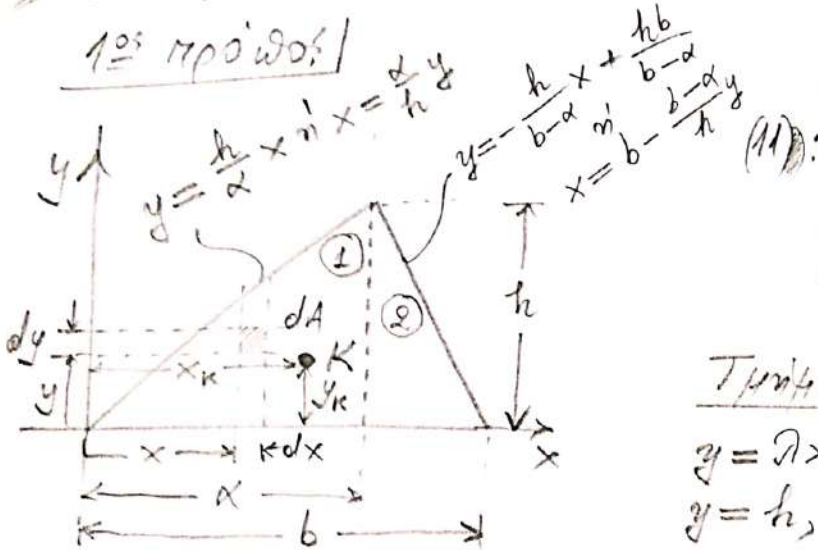 1ος τρόπος
y = h/α x ή x = α/h y
y = - h/(b-α) x + hb/(b-α)
ή
x = b - (b-α)/h y
(11):
y
①
②
h
dA
dy
K
x_K
y_K
y
x
dx
x
α
b
Τμήμ
y = λx
y = h,